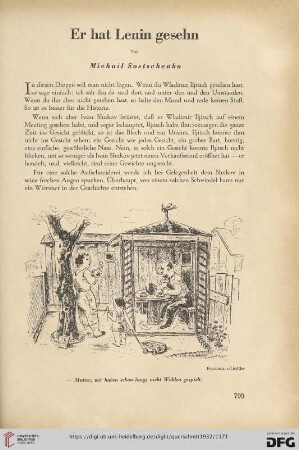 Er hat Lenin gesehn
Von
Michail Sostschenko
In diesen Dingen soll man nicht lügen. Wenn du Wladimir Iljitsch gesehen hast,
so sage einfach: ich sah ihn da und dort und unter den und den Umständen.
Wenn du ihn aber nicht gesehen hast, so halte den Mund und rede keinen Stuß.
So ist es besser für die Historie.
Wenn sich aber Iwan Shukov brüstet, daß er Wladimir Iljitsch auf einem
Meeting gesehen habe, und sogar behauptet, Iljitsch habe ihm sozusagen die ganze
Zeit ins Gesicht geblickt, so ist das Blech und ein Unsinn. Iljitsch konnte ihm
nicht ins Gesicht sehen: ein Gesicht wie jedes Gesicht, ein grober Bart, borstig,
eine einfache, gewöhnliche Nase. Nein, in solch ein Gesicht konnte Iljitsch nicht
blicken, um so weniger als Iwan Shukov jetzt einen Verkaufsstand eröffnet hat — er
handelt, und, vielleicht, sind seine Gewichte ungeeicht.
Für eine solche Aufschneiderei werde ich bei Gelegenheit dem Shukov in
seine frechen Augen spucken. Überhaupt, von einem solchen Schwindel kann nur
ein Wirrwarr in der Geschichte entstehen.
— Mutter, wir haben schon lange nicht Wählen gespielt.
799
https://digi.ub.uni-heidelberg.de/diglit/querschnitt1932/1171
UNIVERSITÄTS-
BIBLIOTHEK
HEIDELBERG
gefördert durch die
DFG